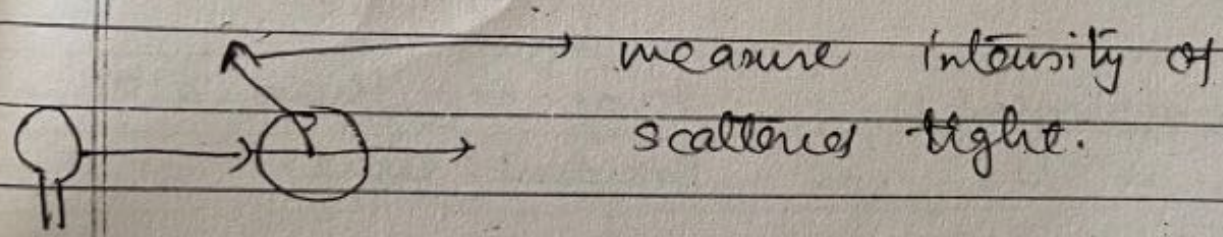 measure intensity of
scattered light.